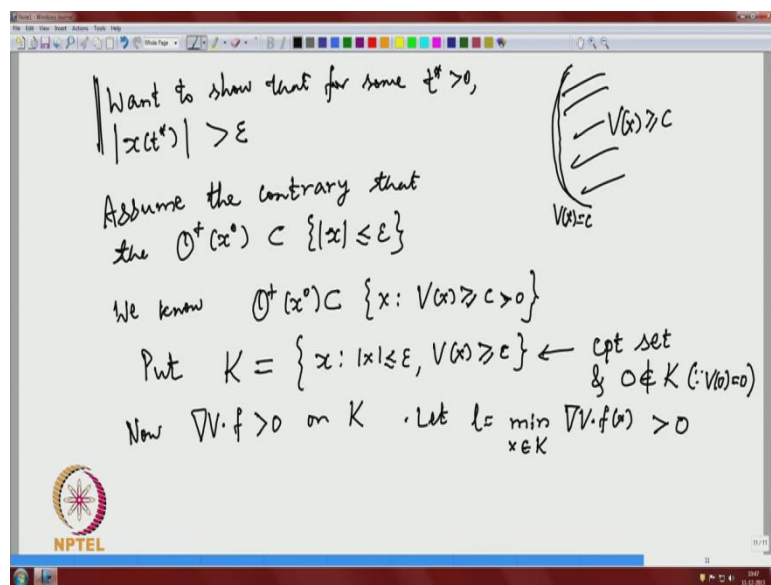 Note1 - Windows Journal
File Edit View Insert Actions Tools Help
Whole Page
Want to show that for some t* > 0,
|x(t*)| > ε
V(x) ≥ c
V(x)=c
Assume the contrary that
the O⁺(x⁰) ⊂ {|x| ≤ ε}
We know O⁺(x⁰) ⊂ {x : V(x) ≥ c > 0}
Put K = {x : |x| ≤ ε, V(x) ≥ c} ← cpt set
& 0 ∉ K (∵ V(0)=0)
Now ∇V·f > 0 on K . Let l = min ∇V·f(x) > 0
x∈K
NPTEL
11/11
11
10:47
11-12-2013